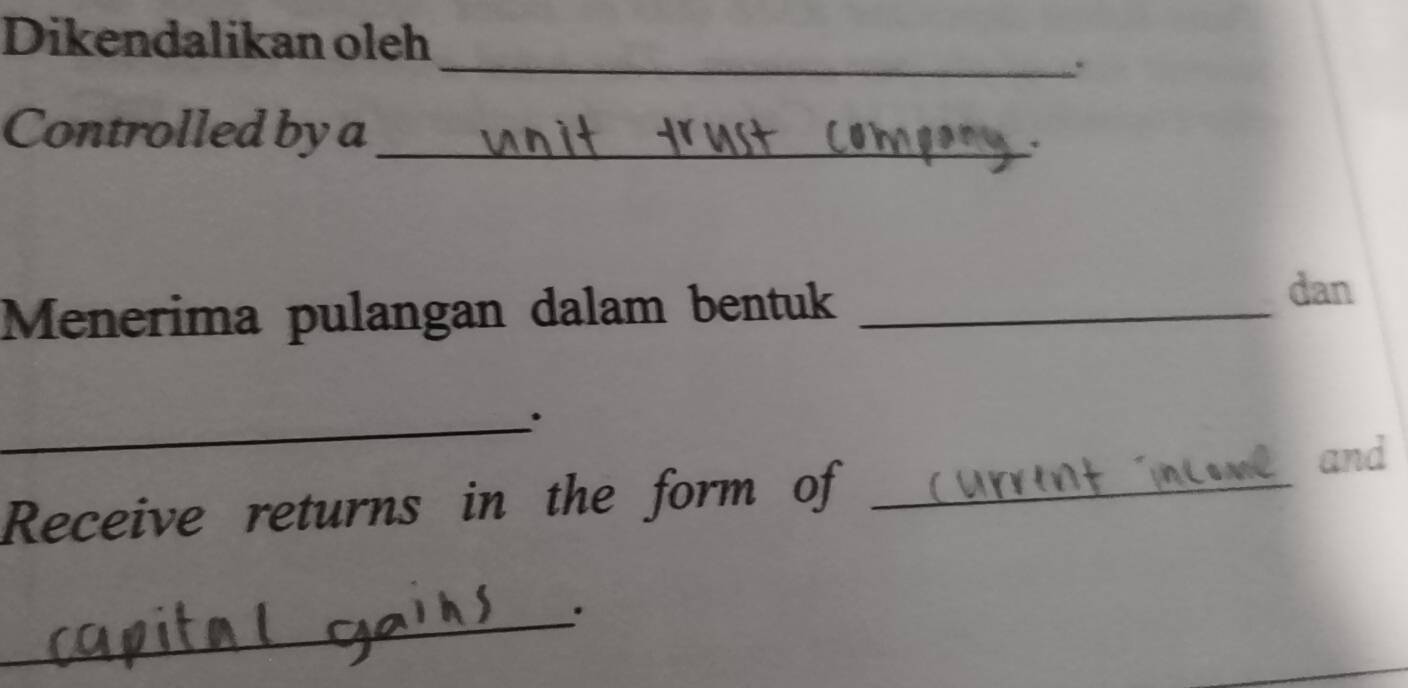 Dikendalikan oleh ____________________.
Controlled by a unit trust company.
Menerima pulangan dalam bentuk ____________________ dan
____________________.
Receive returns in the form of current income and
capital gains.